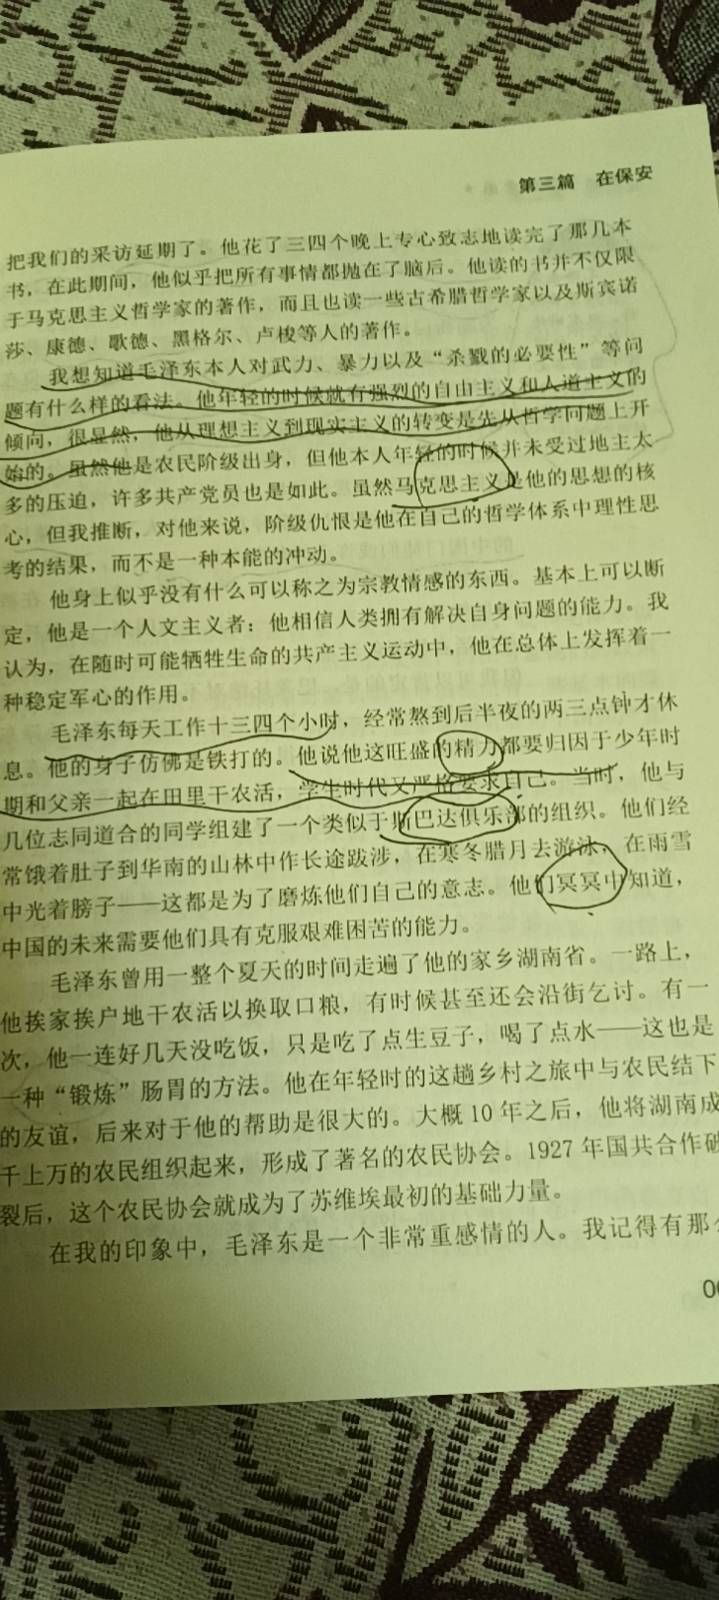 第三篇 在保安
把我们的采访延期了。他花了三四个晚上专心致志地读完了那几本
书，在此期间，他似乎把所有事情都抛在了脑后。他读的书并不仅限
于马克思主义哲学家的著作，而且也读一些古希腊哲学家以及斯宾诺
莎、康德、歌德、黑格尔、卢梭等人的著作。
我想知道毛泽东本人对武力、暴力以及“杀戮的必要性”等问
题有什么样的看法。他年轻的时候就有强烈的自由主义和人道主义的
倾向，很显然，他从理想主义到现实主义的转变是先从哲学问题上开
始的。虽然他是农民阶级出身，但他本人年轻的时候并未受过地主太
多的压迫，许多共产党员也是如此。虽然马克思主义是他的思想的核
心，但我推断，对他来说，阶级仇恨是他在自己的哲学体系中理性思
考的结果，而不是一种本能的冲动。
他身上似乎没有什么可以称之为宗教情感的东西。基本上可以断
定，他是一个人文主义者：他相信人类拥有解决自身问题的能力。我
认为，在随时可能牺牲生命的共产主义运动中，他在总体上发挥着一
种稳定军心的作用。
毛泽东每天工作十三四个小时，经常熬到后半夜的两三点钟才休
息。他的身子仿佛是铁打的。他说他这旺盛的精力都要归因于少年时
期和父亲一起在田里干农活，学生时代又严格要求自己。当时，他与
几位志同道合的同学组建了一个类似于斯巴达俱乐部的组织。他们经
常饿着肚子到华南的山林中作长途跋涉，在寒冬腊月去游泳，在雨雪
中光着膀子——这都是为了磨炼他们自己的意志。他们冥冥中知道，
中国的未来需要他们具有克服艰难困苦的能力。
毛泽东曾用一整个夏天的时间走遍了他的家乡湖南省。一路上，
他挨家挨户地干农活以换取口粮，有时候甚至还会沿街乞讨。有一
次，他一连好几天没吃饭，只是吃了点生豆子，喝了点水——这也是
一种“锻炼”肠胃的方法。他在年轻时的这趟乡村之旅中与农民结下
的友谊，后来对于他的帮助是很大的。大概10年之后，他将湖南成
千上万的农民组织起来，形成了著名的农民协会。1927年国共合作破
裂后，这个农民协会就成为了苏维埃最初的基础力量。
在我的印象中，毛泽东是一个非常重感情的人。我记得有那